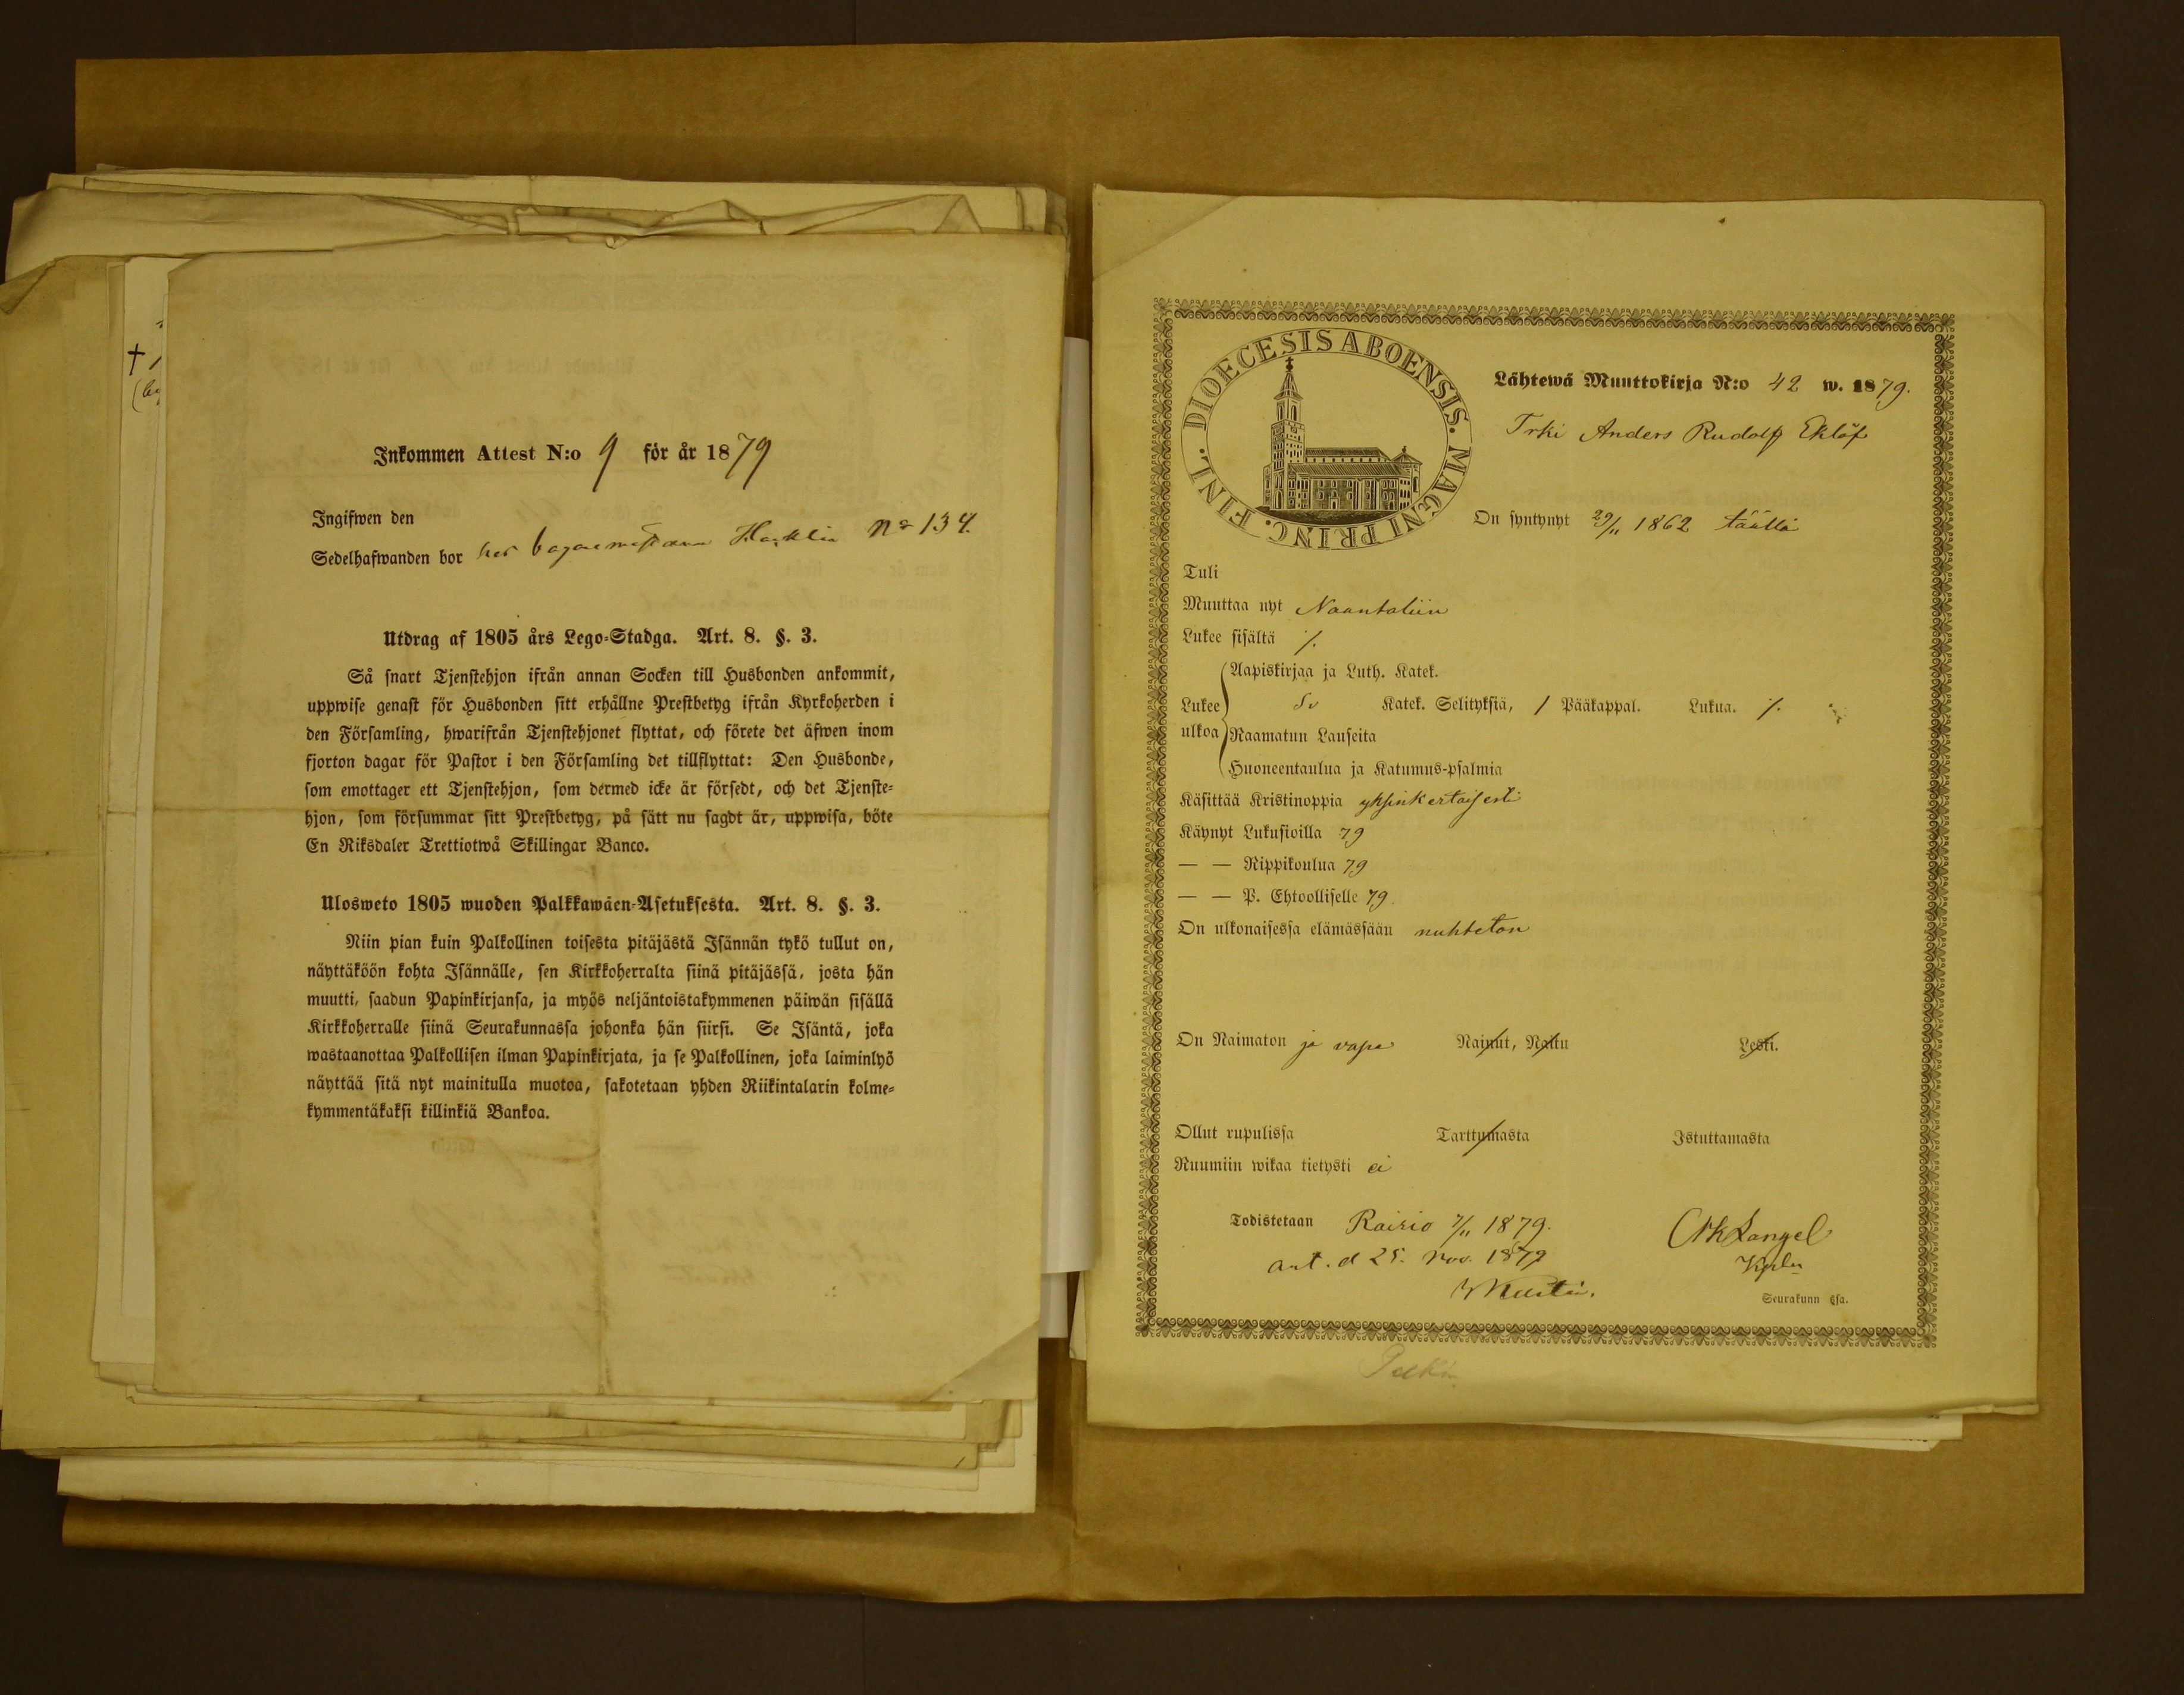 Inkommen Attest N:o 9 för år 1879
Ingifwen den
Sedelhafwanden bor hos No 134.
Utdrag af 1805 års Lego-Stadga. Art. 8. §. 3.
Så snart Tjenstehjon ifrån annan Socken till Husbonden ankommit,
uppwise genast för Husbonden sitt erhållne Prestbetyg ifrån Kyrkoherden i
den Församling, hwarifrån Tjenstehjonet flyttat, och förete det äfwen inom
fjorton dagar för Pastor i den Församling det tillflyttat: Den Husbonde,
som emottager ett Tjenstehjon, som dermed icke är försedt, och det Tjenste-
hjon, som försummar sitt Prestbetyg, på sätt nu sagdt är, uppwisa, böte
En Riksdaler Trettiotwå Skillingar Banco.
Ulosweto 1805 wuoden Palkkawäen-Asetuksesta. Art. 8. §. 3.
Niin pian kuin Palkollinen toisesta pitäjästä Isännän tykö tullut on,
näyttäköön kohta Isännälle, sen Kirkkoherralta siinä pitäjässä, josta hän
muutti, saadun Papinkirjansa, ja myös neljäntoistakymmenen päiwän sisällä
Kirkkoherralle siinä Seurakunnassa johonka hän siirsi. Se Isäntä, joka
wastaanottaa Palkollisen ilman Papinkirjata, ja se Palkollinen, joka laiminlyö
näyttää sitä nyt mainitulla muotoa, sakotetaan yhden Riikintalarin kolme-
kymmentäkaksi killinkiä Bankoa.
DIOECESIS ABOENSIS. MAGNI PRINC. FINL.
Lähtewä Muuttokirja N:o 42 w. 1879.
Trki Anders Rudolf Eklöf
On syntynyt 29/11 1862 täällä
Tuli
Muuttaa nyt Naantaliin
Lukee sisältä /.
Aapiskirjaa ja Luth. Katek.
Lukee Sv Katek. Selityksiä, / Pääkappal. Lukua. /.
ulkoa Raamatun Lauseita
Huoneentaulua ja Katumus-psalmia
Käsittää Kristinoppia yksinkertaisesti
Käynyt Lukusioilla 79
— — Rippikoulua 79
— — P. Ehtoolliselle 79.
On ulkonaisessa elämässään nuhteton
On Naimaton ja vapa Nainut, Naitu Leski.
Ollut rupulissa Tarttumasta Istuttamasta
Ruumiin wikaa tietysti ei
Todistetaan Raisio 7/11 1879.
ant. d 25. Nov. 1879
Seurakunn ssa.